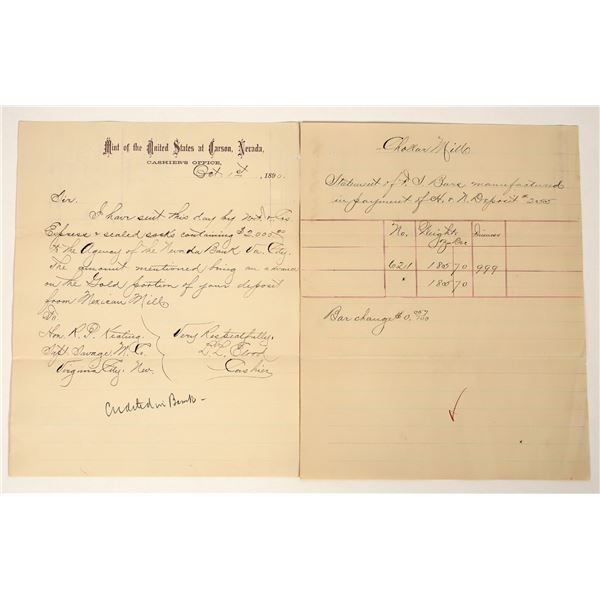 Mint of the United States at Carson, Nevada,
CASHIER'S OFFICE,
Oct 1st, 1890.
Sir.
I have sent this day by
Express 2 sealed sacks containing $2,000.00
to the Agency of the Nevada Bank Va. City.
The amount mentioned being an advance
on the Gold portion of your deposit
from Mexican Mill
To
Hon. R. P. Keating.
Supt. Savage M. Co.
Virginia City, Nev.
Very Respectfully,
Cashier
Credited in Bank -
Chollar Mill
Statement of Bars manufactured
in payment of Deposit
No. Weight Fineness
621 1800 70 999
" 1800 70
Bar change $0.